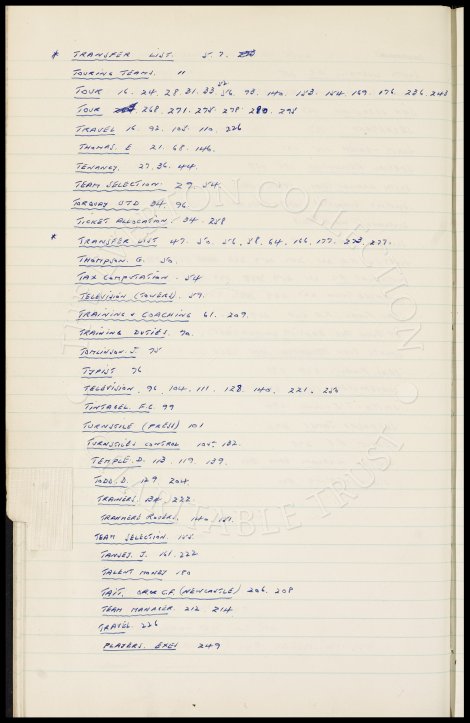 * TRANSFER LIST. 5. 7.
TOURING TEAMS. "
TOUR 16. 24. 28 31. 33 52. 56. 93. 140. 153. 154. 169. 176. 236. 243
TOUR 268. 271. 275. 278. 280. 295
TRAVEL 16. 92. 105. 110. 226
THOMAS. E 21. 68. 146.
TENANCY. 27. 36. 44.
TEAM SELECTION. 27. 54.
TORQUAY UTD 34. 96.
TICKET ALLOCATION. 34. 258
* TRANSFER LIST 47. 50. 56. 58. 64. 166. 177. 277.
THOMPSON. G. 50.
TAX COMPUTATION. 54
TELEVISION (TOWERS). 57.
TRAINING & COACHING 61. 209.
TRAINING DUTIES. 70.
TOMLINSON. J. 75
TYPIST 76
TELEVISION. 96. 104. 111. 128. 140. 221. 250
TINTAGEL. F.C. 99
TURNSTILE (PRESS) 101
TURNSTILES CONTROL 105. 132.
TEMPLE. D. 113. 119. 139.
TODD. D. 129 204
TRAINERS. 134. 222.
TRANMERE ROVERS. 140. 151.
TEAM SELECTION. 155.
TANSEY. J. 161. 222
TALENT MONEY 180
TAIT. (NEWCASTLE) 206. 208
TEAM MANAGER. 212. 214
TRAVEL. 226
PLAYERS. 249
THE COLLECTION
CHARITABLE TRUST